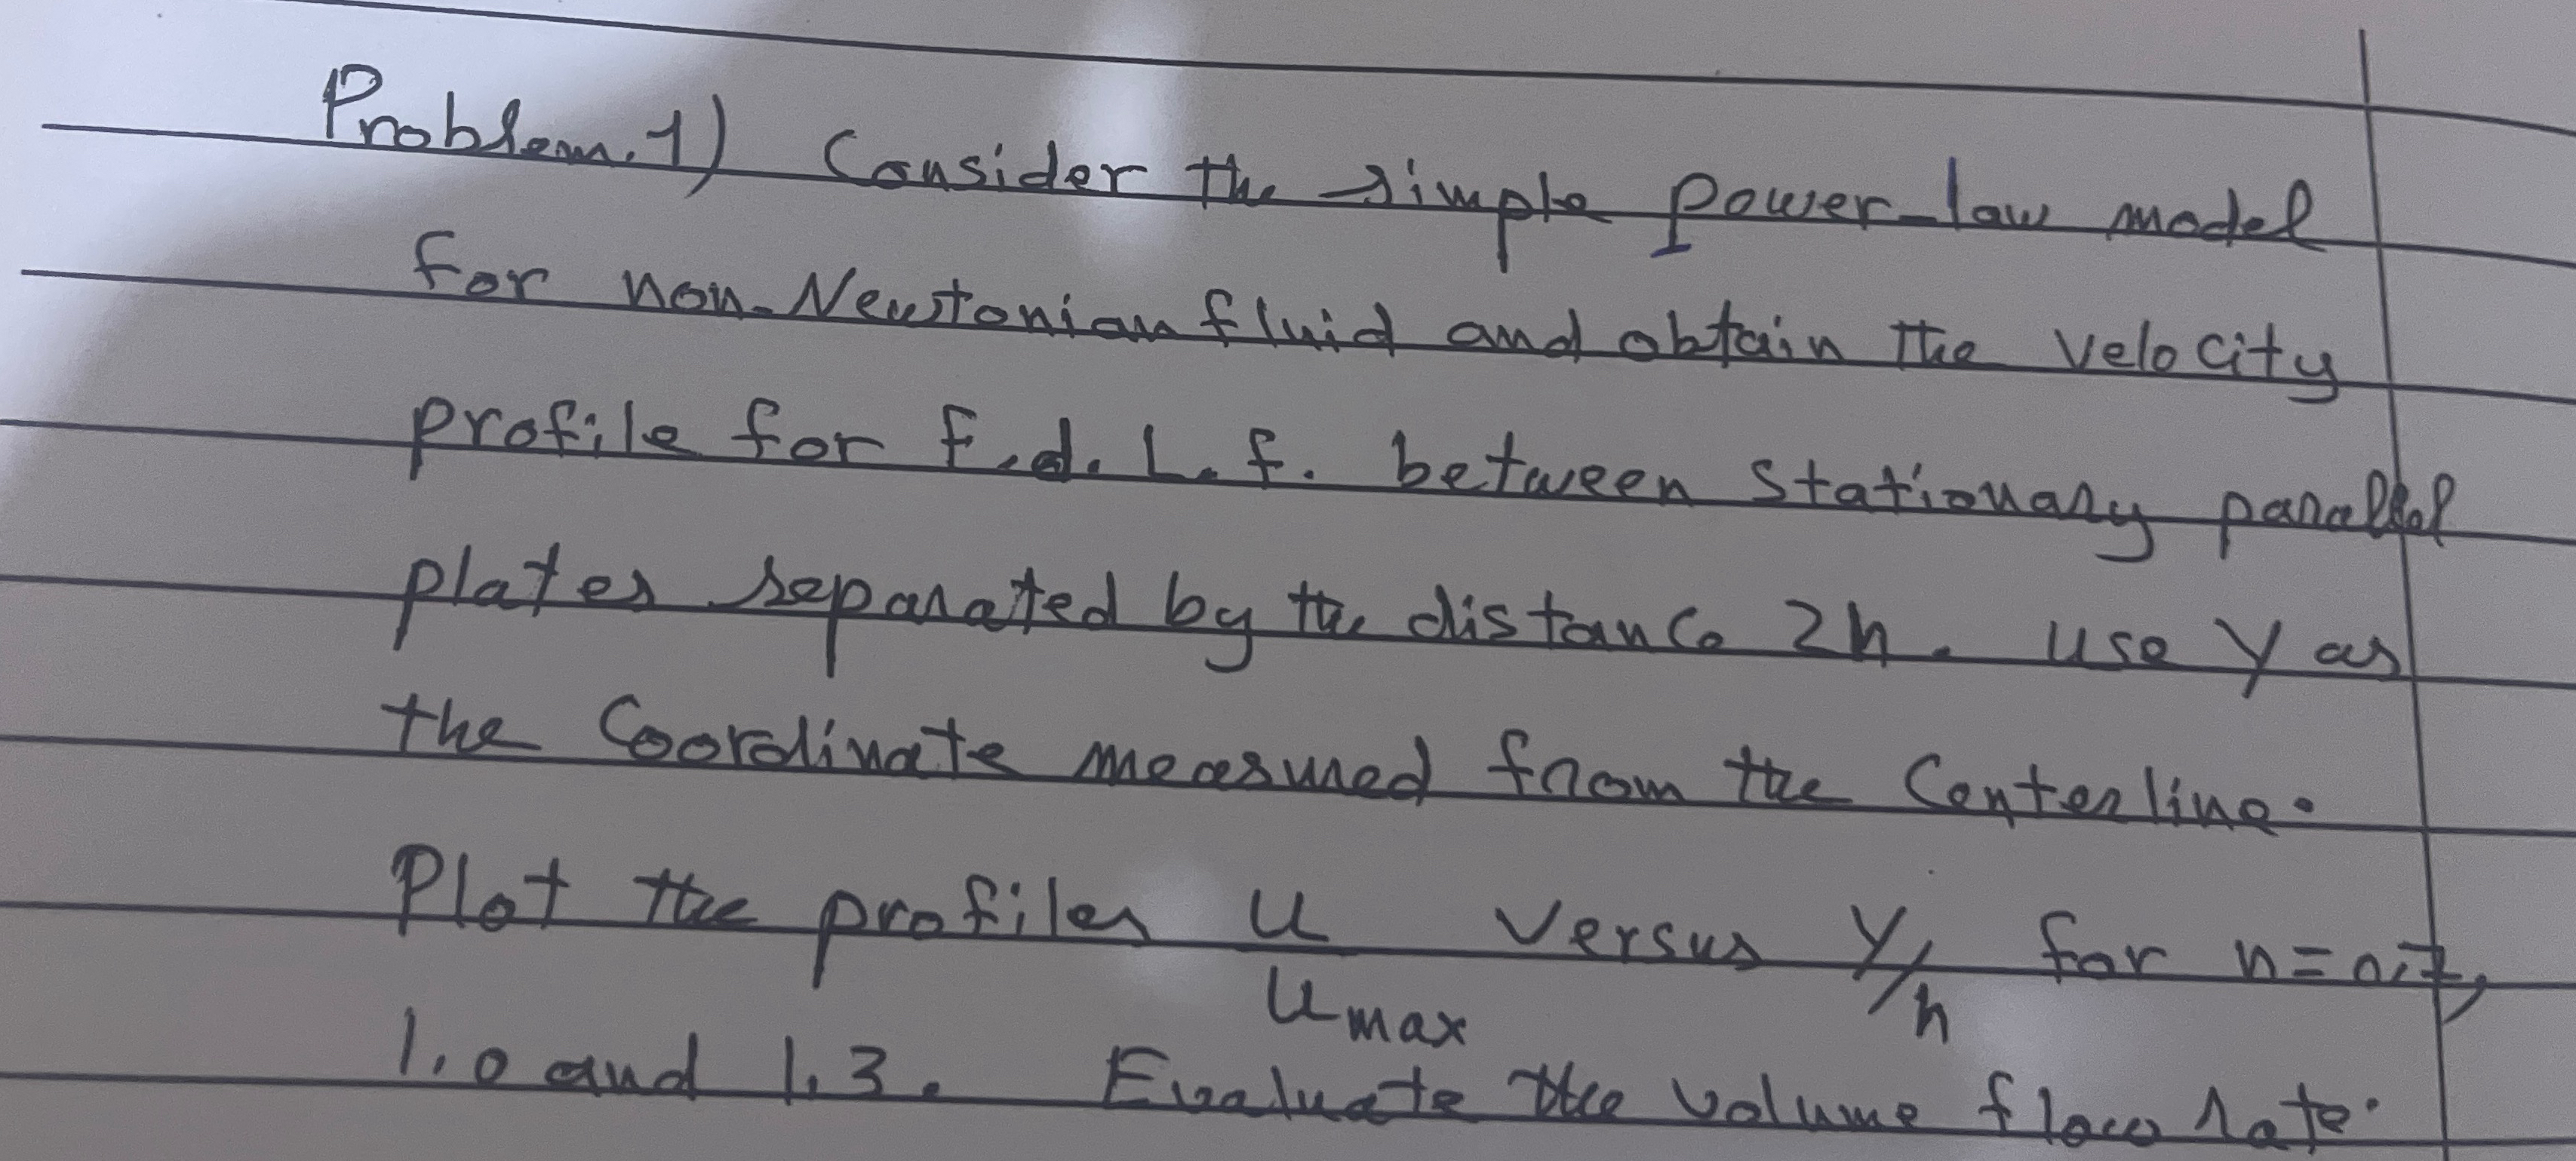 Problem.1) Consider the simple power-law model
for non-Newtonian fluid and obtain the velocity
profile for F.d.L.f. between stationary parallel
plates separated by the distance 2h. use y as
the Coordinate measured from the Centerline.
Plot the profiles u/u max versus y/h for n=0.7,
1.0 and 1.3. Evaluate the volume flow rate.